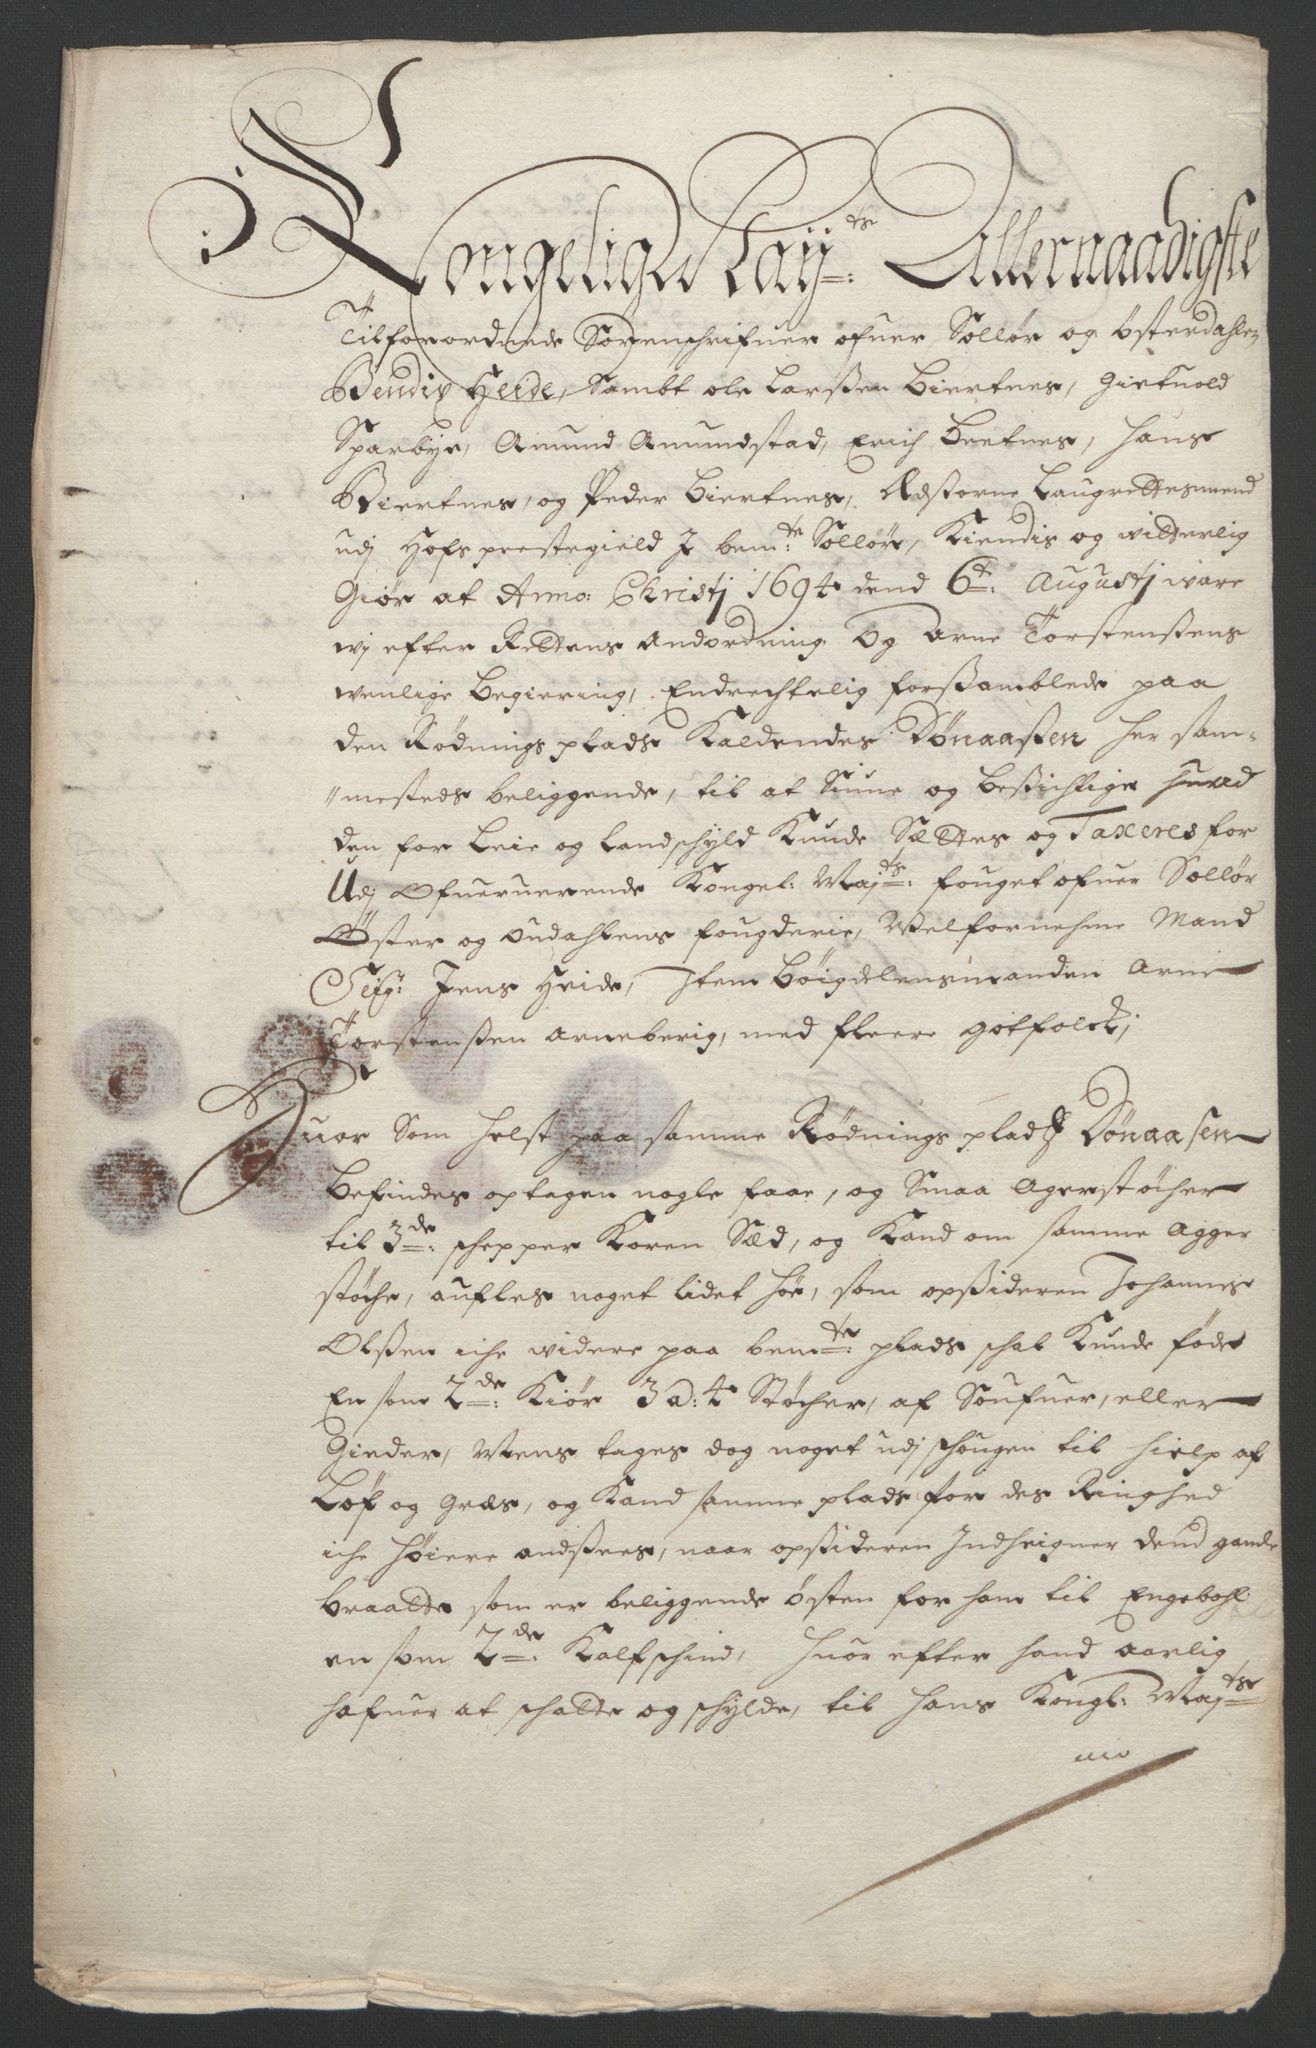 Kongelige May:ts Allernaadigste
Tilforordnede Sorenschrifuer ofuer Sollør og Østerdahlen
Bendix Heide, Sambt ole Larsßen Biertnes, Gietuold
Sparbye, Amund Amundstad, Erich Bertnes, Hans
Biertnes, og Peder Biertnes, Edsorne Laugrettesmend
udj Hofs prestegield J bem:te Sollør, Kiendis og witterlig
Giør at Anno: Christj 1694 dend 6te: Augustj ware
wj efter Rettens Anordning og Arne Torstensßens
wenlige begiering, Endrechtelig forßamblede paa
den Rødnings plads Kaldendes Dønaaßen her sam-
"mesteds beliggende, til at Siune og beßichtige huad
den for Leie og Landschyld Kunde Settes og Taxeres for
Udj Ofueruerende Kongel: Maj:ts fouget ofuer Sollør
Øster og oudahlens fougderie, Welfornehme Mand
Sejg: Jens Heide, Jtem bøigdelensmanden Arne
Torstensßen Arneberig, med fleere gotfolck;
Huor Som helst paa samme Rødnings plads Dønaasen
befindes optagen nogle faae, og Smaa Agerstøcher
til 3de: schepper Koren Sæd, og Kand om samme Agger
støche, aufles noget lidet høe, som opsßideren Johannes
Olsßen iche widere paa bem:te plads schal Kunde føde
En som 2de: Kiør 3 a: 4 Støcher, af Soufuer, eller
Gieder, Mens tages dog noget udj schougen til hielp af
Løf og græs, og Kand samme plads for des Ringhed
iche høiere ansßees, naar opsßideren Jndheigner dend gamle
braatte som er beliggende østen for ham til Engebohl
en som 2de: Kalfschind, huor efter hand aarlig
hafuer at schatte og schylde, til hans Kongl: Maj:ts